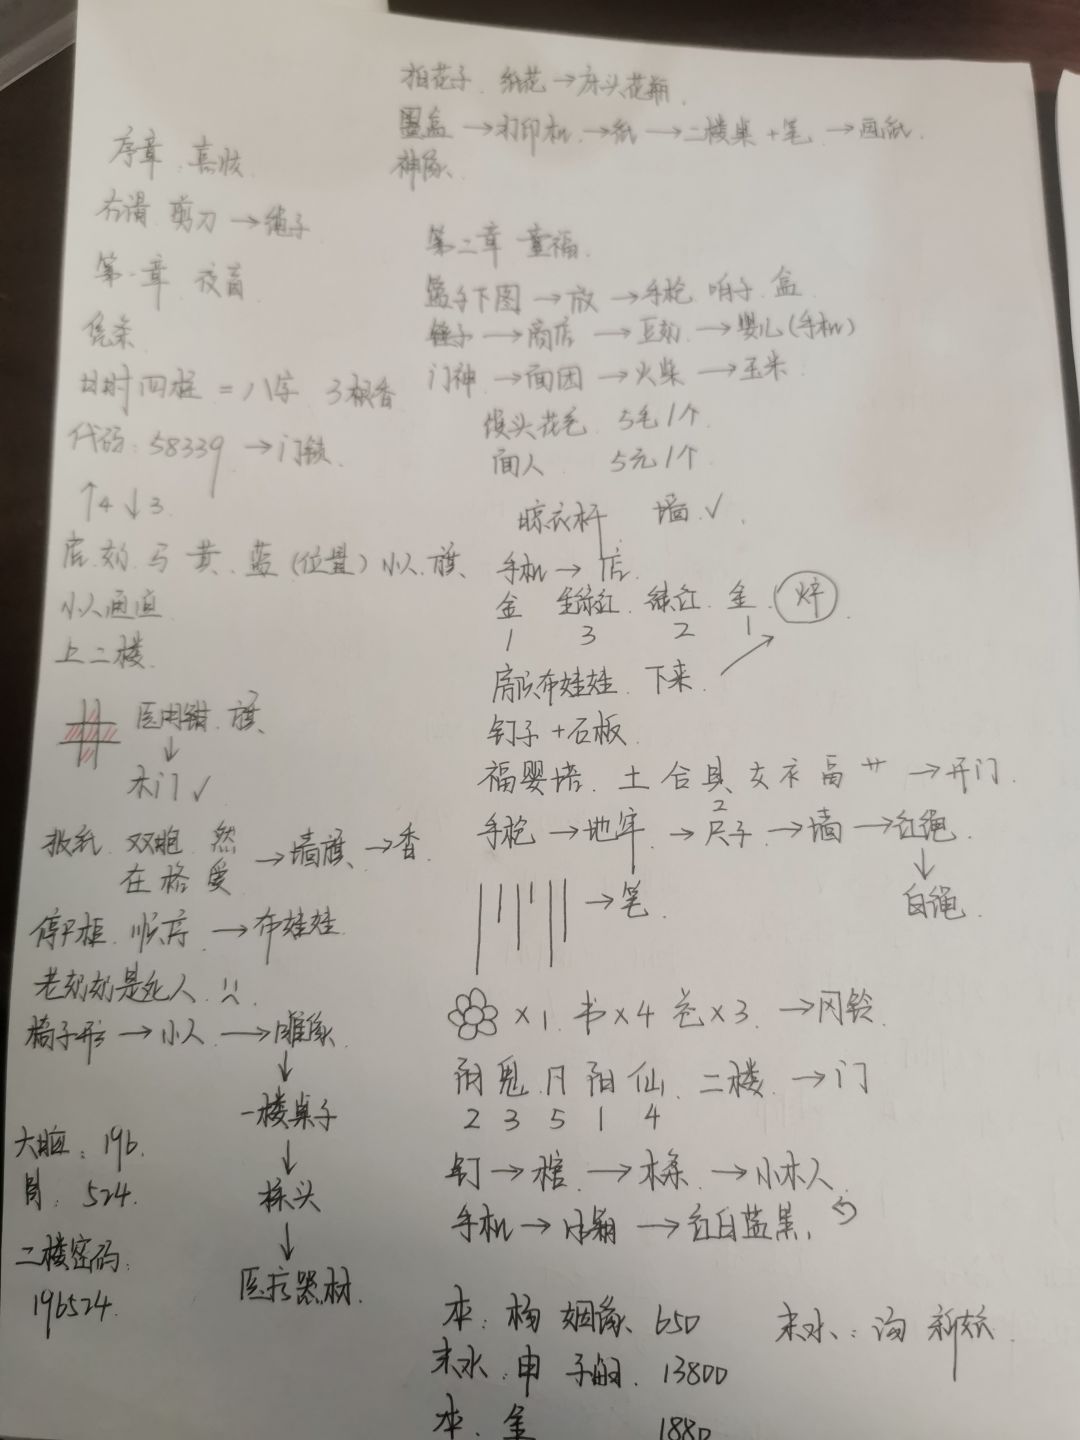 序章
右滑 剪刀 → 绳子
第一章 夜盲
凭条
出时四柱 = 八字 3根香
代码：58339 → 门锁
↑4 ↓3
马 黄 蓝 (位置) 小人 旗
小人通道
上二楼
医用钳 旗
↓
木门 ✓
报纸 双胞 然 → 墙旗 → 香
在格爱
停尸柜 顺序 → 布娃娃
老奶奶是死人
→ 小人 → 雕像
↓
一楼桌子
↓
↓
医疗器材
大脑：196
胃：524
二楼密码：
196524
拍花子 纸花 → 床头花瓶
墨盒 → 打印机 → 纸 → 二楼桌 + 笔 → 画纸
神像
第二章 童福
下图 → 放 → 手枪 哨子 盒
锤子 → 商店 → 豆奶 → 婴儿(手机)
门神 → 面团 → 火柴 → 玉米
馒头花毛 5毛1个
面人 5元1个
晾衣杆 墙 ✓
手机 → 店
金 绿红 绿红 金
1 3 2 1
布娃娃 下来
钉子 + 石板
福婴塔 土 合 具 女 衤 畐 艹 → 开门
手枪 → 地牢 → 尺子 → 墙 → 红绳
2
↓
白绳
→ 笔
×1 书×4 ×3 → 风铃
阴 鬼 月 阳 仙 二楼 → 门
2 3 5 1 4
钉 → 棺 → 木条 → 小木人
手机 → → 红白蓝黑
本：杨 姻缘 650
末水：申 子嗣 13800
末水：海 新娘
本：金 1880